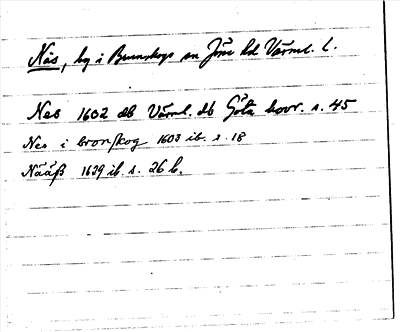 Näs, by i Brunskogs sn Jösse hd Värml. l.
Nes 1602 db Värml. db Göta hovr. s. 45
Nes i bronskog 1603 ib. s. 18
Nääß 1629 ib. s. 26 b.